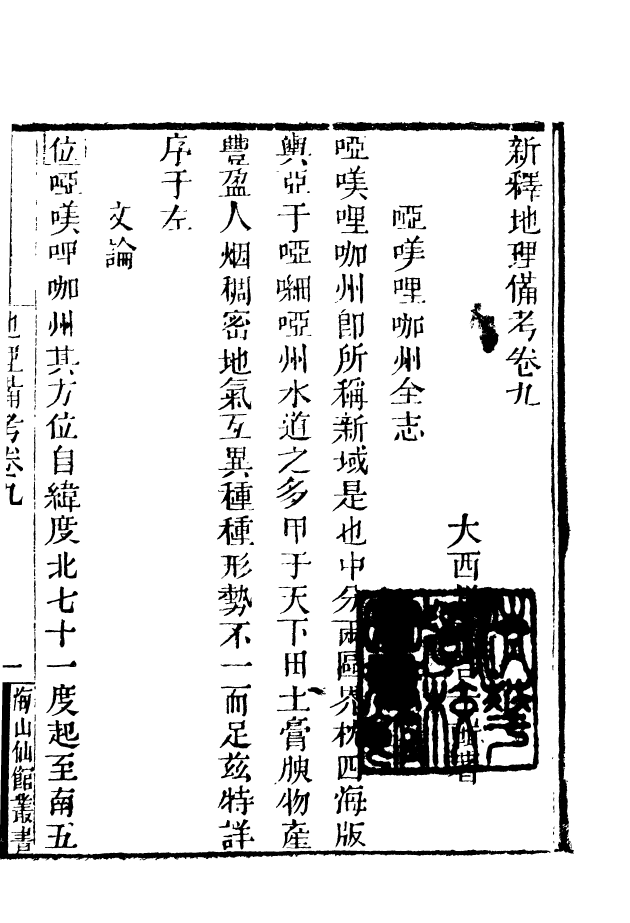 新釋地理備考卷九
大西
著
啞美哩咖州全志
啞美哩咖州卽所稱新域是也中分兩區界枕四海版
輿亞于啞細啞州水道之多甲于天下田土膏腴物產
豐盈人烟稠密地氣互異種種形勢不一而足兹特詳
序于左
文論
位啞美哩咖州其方位自緯度北七十一度起至南五
地理備考卷九
一
海山仙館叢書